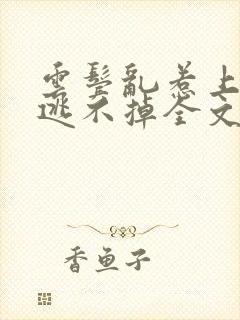 云鬓乱惹上
逃不掉全文
香鱼子